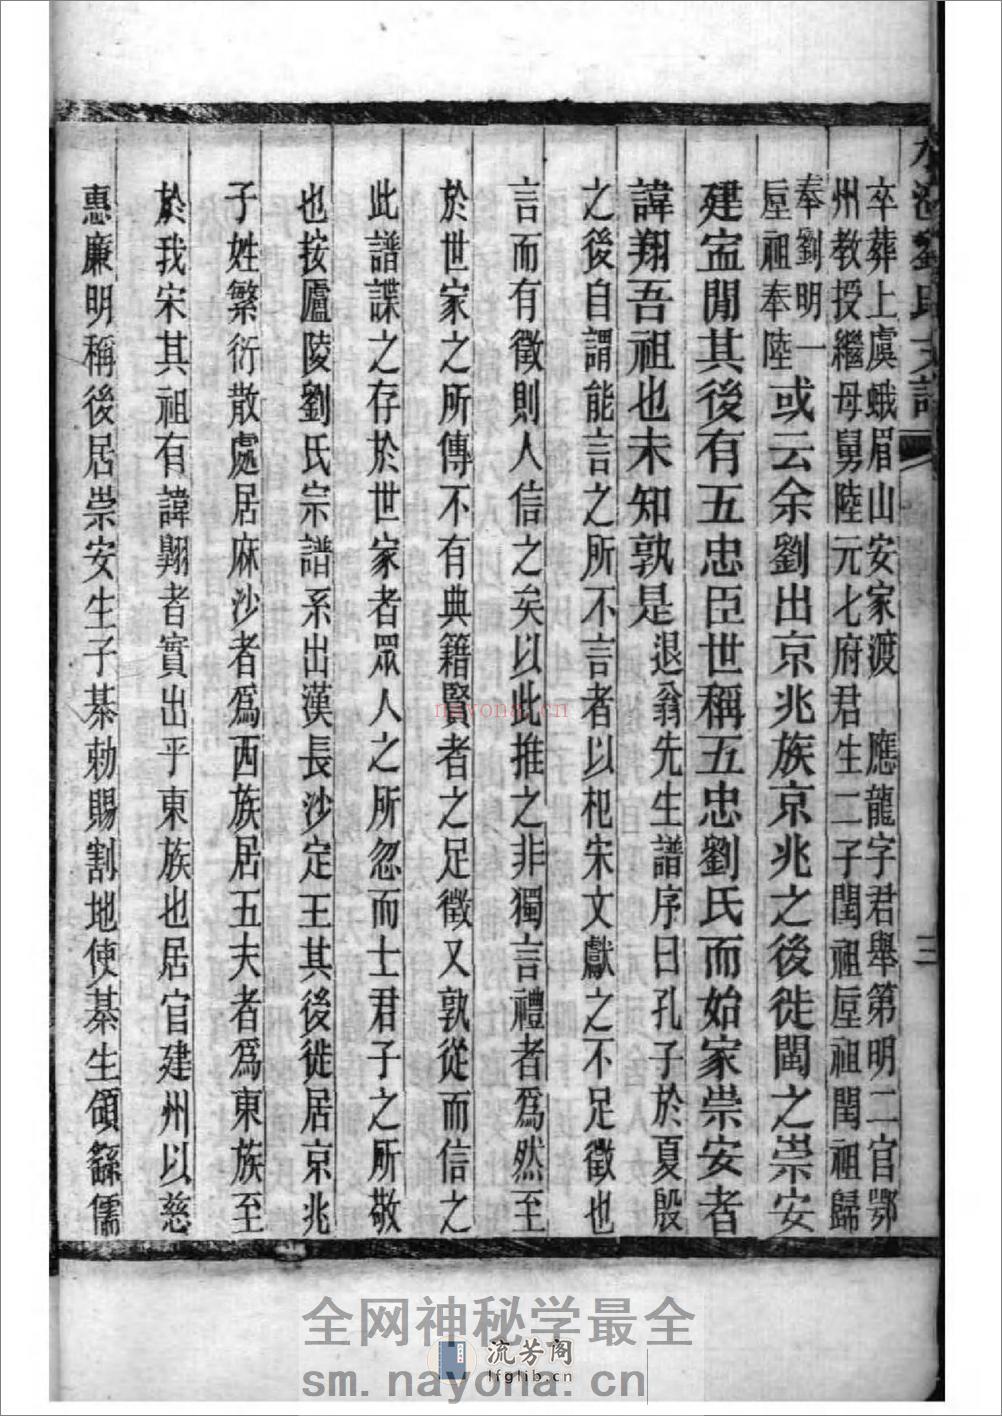 劉氏
三
卒葬上虞蛾眉山安家渡 應龍字君舉第明二官鄂
州教授繼母舅陸元七府君生二子閏祖垕祖閏祖歸
奉劉明一
垕祖奉陸
或云余劉出京兆族京兆之後徙閩之崇安
建宣閒其後有五忠臣世稱五忠劉氏而始家崇安者
諱翔吾祖也未知孰是
退翁先生譜序曰孔子於夏殷
之後自謂能言之所不言者以杞宋文獻之不足徵也
言而有徵則人信之矣以此推之非獨言禮者爲然至
於世家之所傳不有典籍賢者之足徵又孰從而信之
此譜諜之存於世家者眾人之所忽而士君子之所敬
也按廬陵劉氏宗譜系出漢長沙定王其後徙居京兆
子姓繁衍散處居麻沙者爲西族居五夫者爲東族至
於我宋其祖有諱翺者實出乎東族也居官建州以慈
惠廉明稱後居崇安生子棊勅賜割地使棊生頎繇儒
nayona.cn
全网神秘学最全
流芳阁
lfglib.cn
sm.nayona.cn